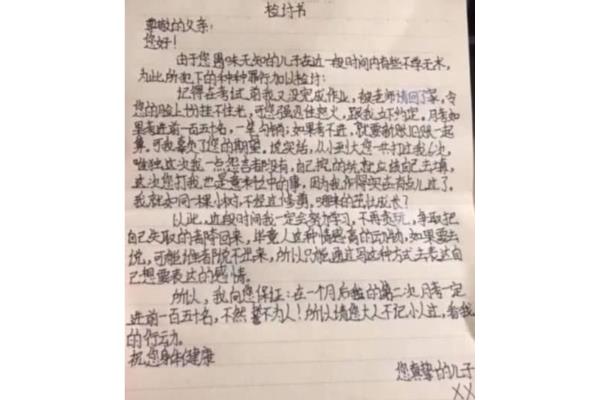 检讨书
尊敬的父亲:
您好!
由于您愚昧无知的儿子在近一段时间内有些不学无术,
为此所犯下的种种罪行加以检讨:
记得在考试前我又没完成作业,被老师请回了家,令
您的脸上份挂不住光,可您强忍住怒火,跟我立下约定,月考如
果考进前一百五十名,一笔勾销;如果考不进,就要新账旧账一起
算。可我辜负了您的期望。说实话,从小到大您一共打过我6次,
唯独这次我一点怨言都没有,自己挖的坑就应该自己去填,
这次您打我也是意料之中的事,因为我作得实在有点儿过了。
我就如同一棵小树,不经过修剪,哪来的茁壮成长?
以此,这段时间我一定会努力学习,不再贪玩,争取把
自己失取的都夺回来,毕竟人这种情感高的动物,如果要去
说,可能谁都说不出来,所以只能通过写这种方式去表达自
己想要表达的感情。
所以,我向您保证:在一个月后的第二次月考一定
进前一百五十名,不然誓不为人!所以请您大人不记小人过,看我
的行动。
祝您身体健康
您真挚的儿子
XX